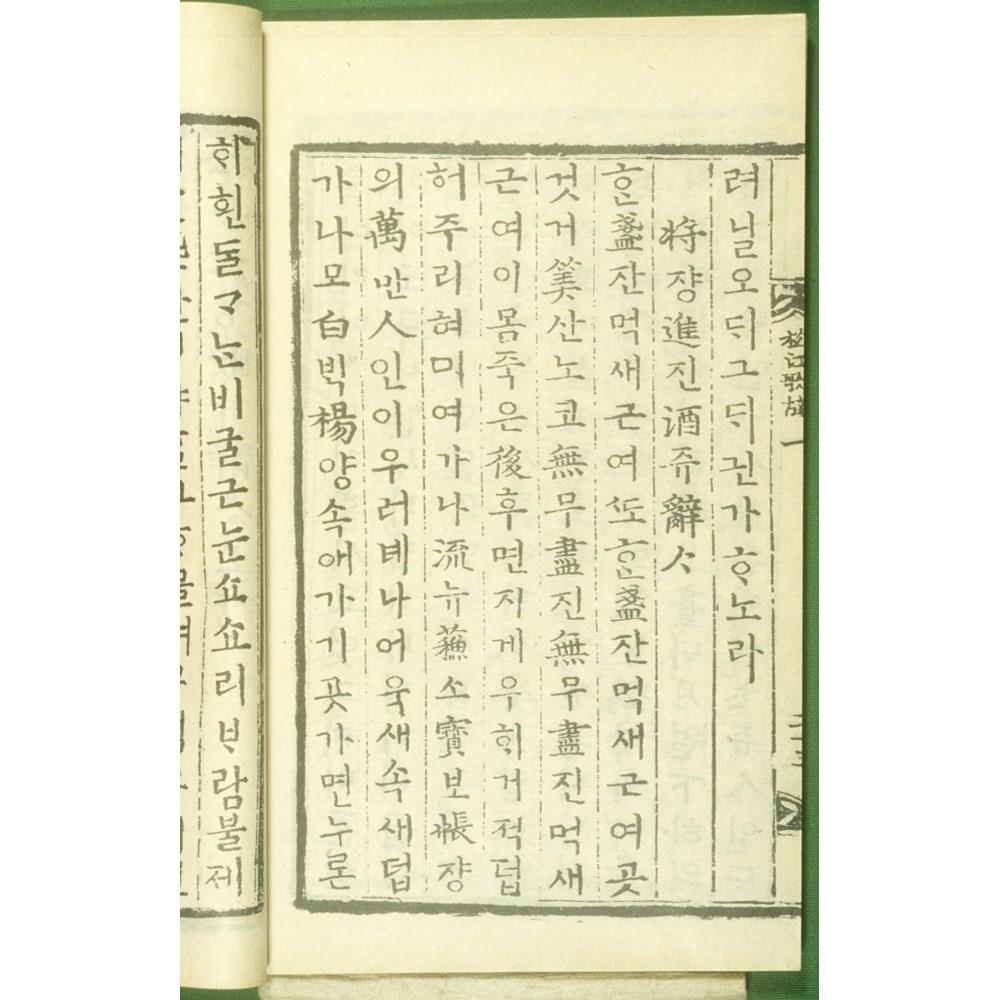 松江歌辭 一
려닐오ᄃᆡ그ᄃᆡ긘가ᄒᆞ노라
將쟝進진酒쥬辭ᄉᆞ
ᄒᆞᆫ盞잔먹새근여ᄯᅩᄒᆞᆫ盞잔먹새근여곳
것거筭산노코無무盡진無무盡진먹새
근여이몸죽은後후면지게우ᄒᆡ거적덥
허주리혀ᄆᆡ여가나流뉴蘓소寶보帳쟝
의萬만人인이우러녜나어욱새속새덥
가나모白ᄇᆡᆨ楊양속애가기곳가면누론
ᄒᆡ흰ᄃᆞᆯᄀᆞᄂᆞᆫ비굴근눈쇼쇼리ᄇᆞ람불제